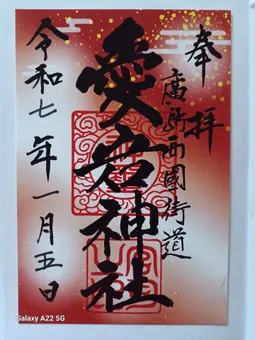 奉拝
廣島西國街道
愛宕神社
令和七年一月五日
Galaxy A22 5G